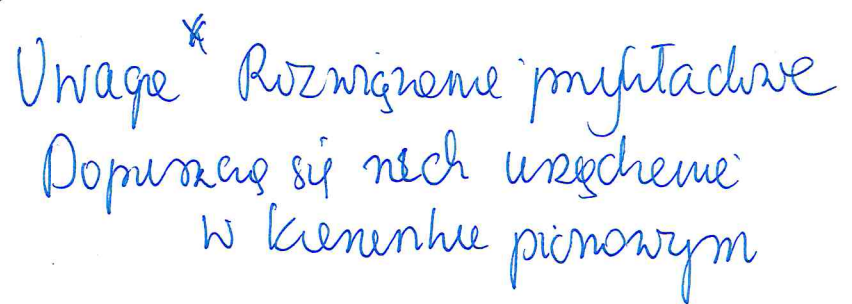 Uwaga * Rozwiązanie przykładowe
Dopuszcza się ruch urządzenia
w kierunku pionowym